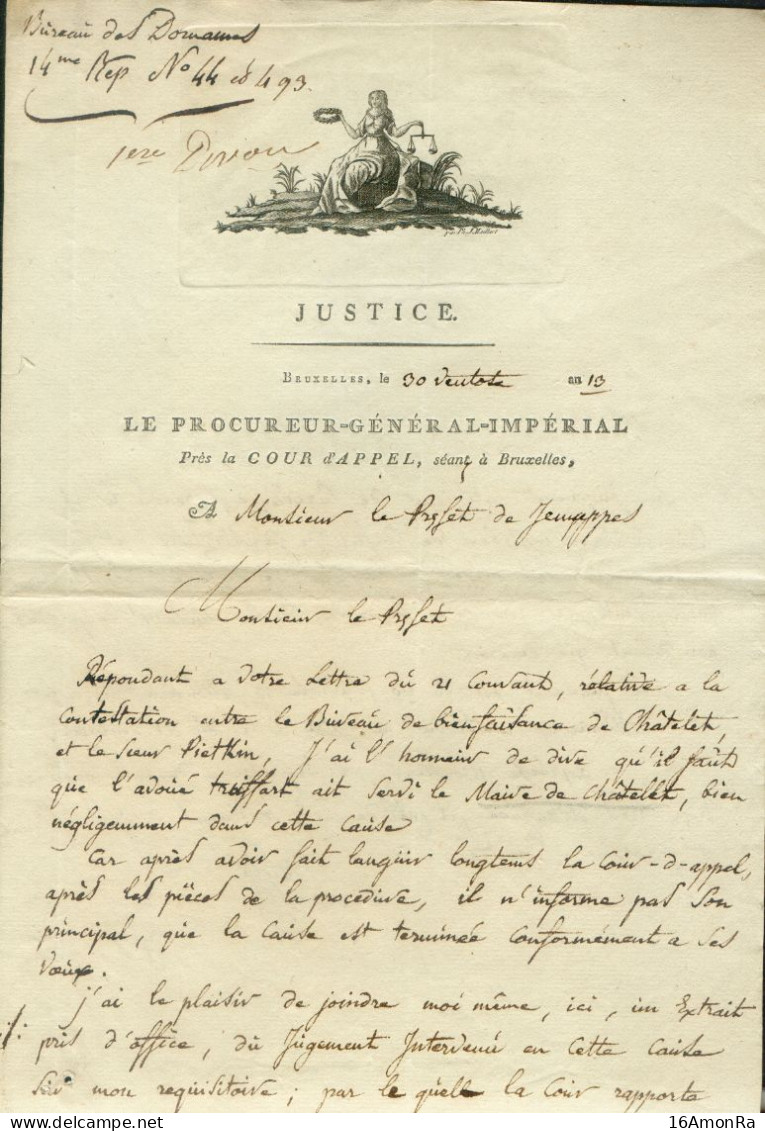 Bureau des Domaines
14me Rep No 44 et 493.
1ere Divon
JUSTICE.
BRUXELLES, le 30 Ventose an 13
LE PROCUREUR-GÉNÉRAL-IMPÉRIAL
Près la COUR d'APPEL, séant à Bruxelles,
A Monsieur le Préfet de Jemappes
Monsieur le Préfet
Répondant a votre Lettre du 21 Courant, rélative a la
Contestation entre le Bureau de bienfaisance de Châtelet,
et le sieur Pietkin, J'ai l'honneur de dire qu'il faut
que l'avoué truffart ait servi le Maire de Châtelet, bien
négligemment dans cette cause
Car après avoir fait languir longtems la Cour-d-appel,
après les pièces de la procedure, il n'informe pas son
principal, que la Cause est terminée Conformément a ses
vœux.
J'ai le plaisir de joindre moi même, ici, un Extrait
pris d'office, du Jugement Intervenu en cette cause
sur mon requisitoire; par le quel la Cour rapporta
16AmonRa